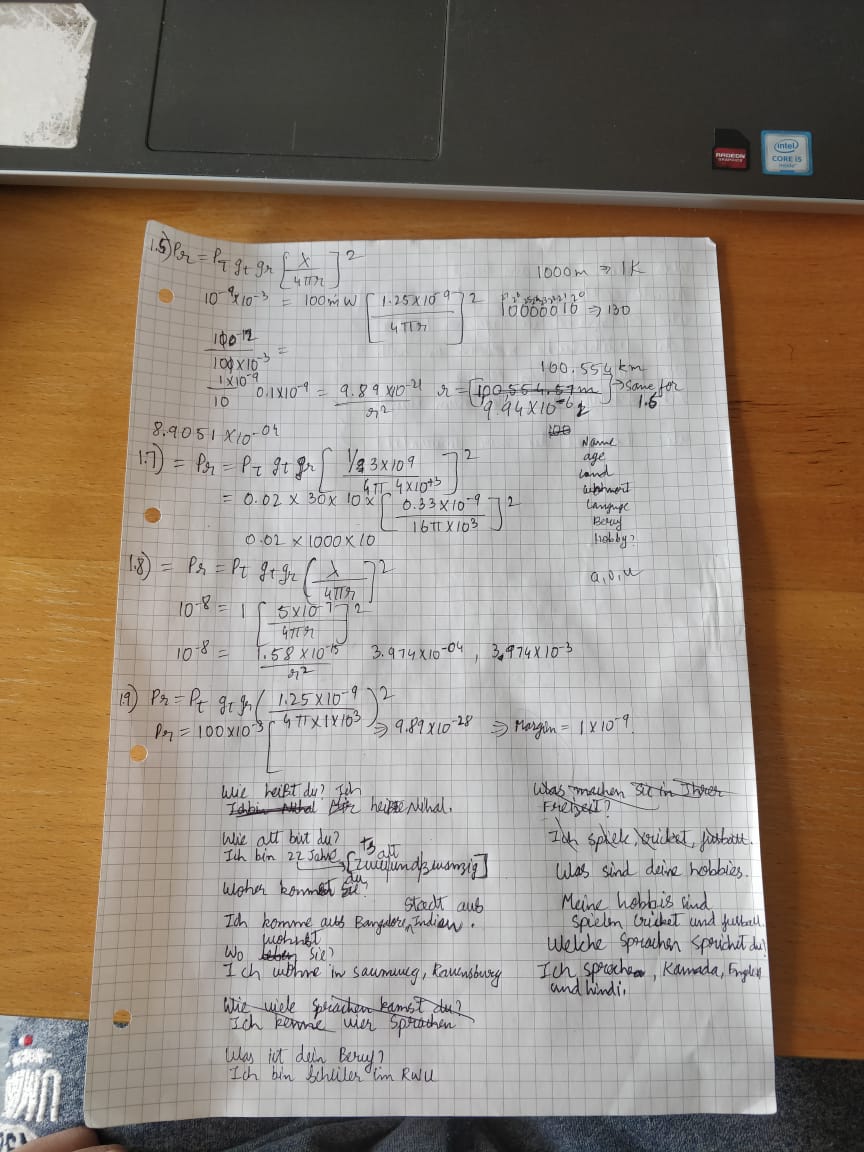 RADEON
GRAPHICS
intel
CORE i5
inside
1.5) Pr = PT gt gr [λ / 4πr]²
1000m ⇒ 1K
10⁻⁹ × 10⁻³ = 100mW [1.25×10⁻⁹ / 4πr]²
10000010 ⇒ 130
100⁻¹² / 100×10⁻³ =
100.554 km
1×10⁻⁹ / 10 0.1×10⁻⁹ = 9.89×10⁻²¹ / r² r = [100,554.57m] → Same for 1.6
9.94×10⁻⁶
8.9051 ×10⁻⁰⁴
100
1.7) = Pr = PT gt gr [1/3×10⁹ / 4π 4×10⁺³]²
= 0.02 × 30 × 10 × [0.33×10⁻⁹ / 16π×10³]²
0.02 × 1000 × 10
Name
age
Land
Language
Beruf
Hobby?
a, o, u
1.8) = Pr = PT gt gr (λ / 4πr]²
10⁻⁸ = 1 [5×10⁻⁷ / 4πr]²
10⁻⁸ = 1.58×10⁻¹⁵ / r² 3.974×10⁻⁰⁴, 3.974×10⁻³
1.9) Pr = Pt gt gr (1.25×10⁻⁹ / 4π×1×10³)²
Pr = 100×10⁻³ [ ⇒ 9.89×10⁻²⁸ ⇒ Margin = 1×10⁻⁹.
Wie heißt du? Ich
Ich bin Nihal heiße Nihal.
Wie alt bist du?
Ich bin 22 Jahre alt
[zweiundzwanzig]
Woher kommst Sie?
du
Stadt aus
Ich komme aus Bangalore, Indien.
wohnst
Wo leben Sie?
Ich wohne in saumweg, Ravensburg
Wie viele Sprachen kannst du?
Ich kenne vier Sprachen
Was ist dein Beruf?
Ich bin Schüler im RWU
Was machen Sie in Ihrer
Freizeit?
Ich spiele cricket, fussball.
Was sind deine hobbies.
Meine hobbis sind
spielen cricket und fussball.
Welche Sprachen sprichst du?
Ich sprache, Kannada, English
und hindi.